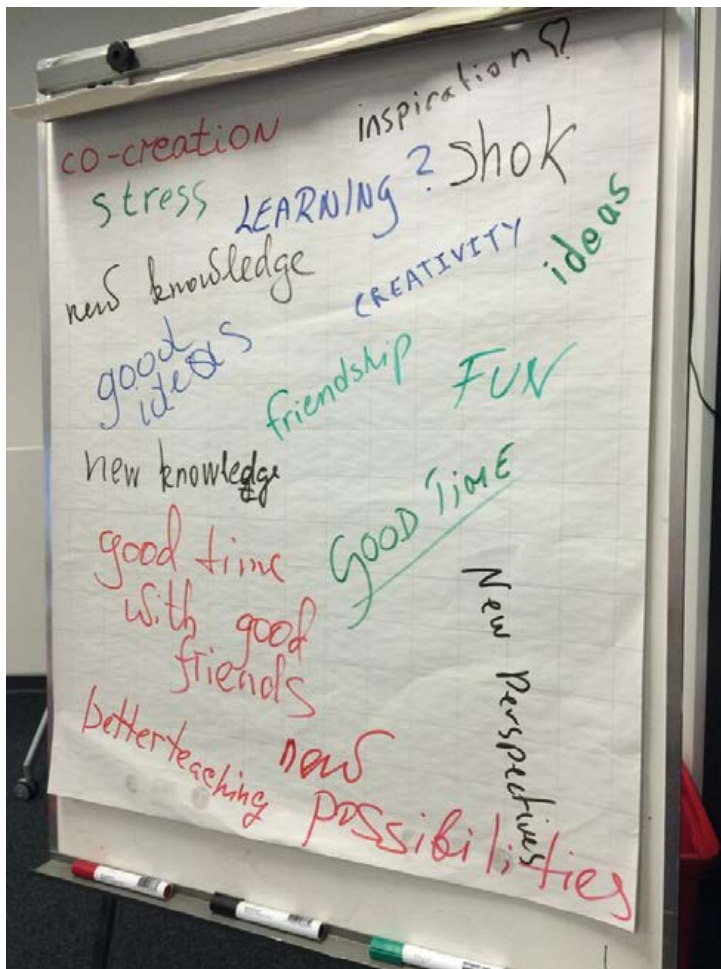 inspiration
co-creation
shok
stress
LEARNING?
ideas
new knowledge
CREATIVITY
good
ideas
friendship
FUN
new knowledge
GOOD TIME
good time
with good
friends
New Perspectives
better teaching
new
possibilities